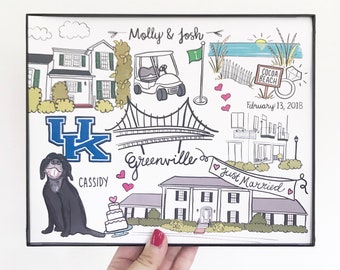 Molly & Josh
COCOA
BEACH
February 13, 2018
UK
Greenville
Just Married
CASSIDY